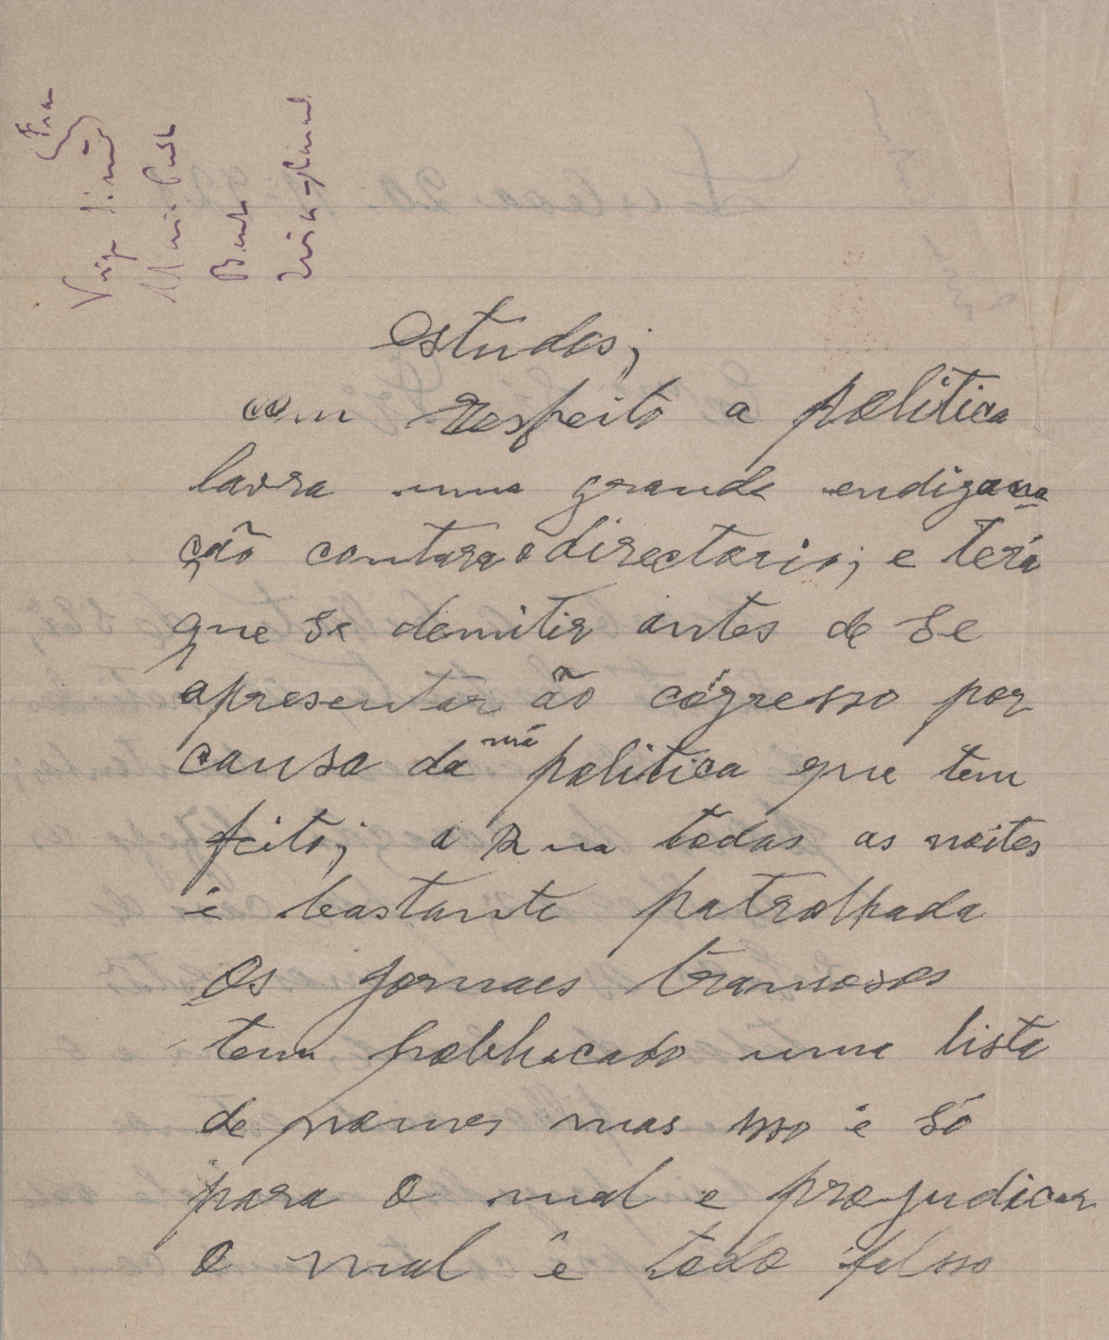 estudos;
com respeito a politica
lavra uma grande endigana
ção contara o directorio; e terá
que se demitir antes de se
apresentar ão cógresso por
causa da má politica que tem
feito; a Rua todas as noites
é bastante patrolhada
Os jornaes tramosos
tem poblicado uma lista
de nomes mas isso é só
para o mal e projudicar
O mal ê todo falsso